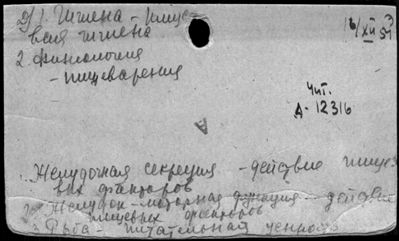 2) 1. Гигиена - пище-
вая гигиена
16/XII 53
2. Физиология
- пищеварения
Чит.
А-12316
А
Желудочная секреция - действие пищевых факторов
2. Желудок - моторная функция - действие
пищевых факторов
3. Рыба - питательная ценность